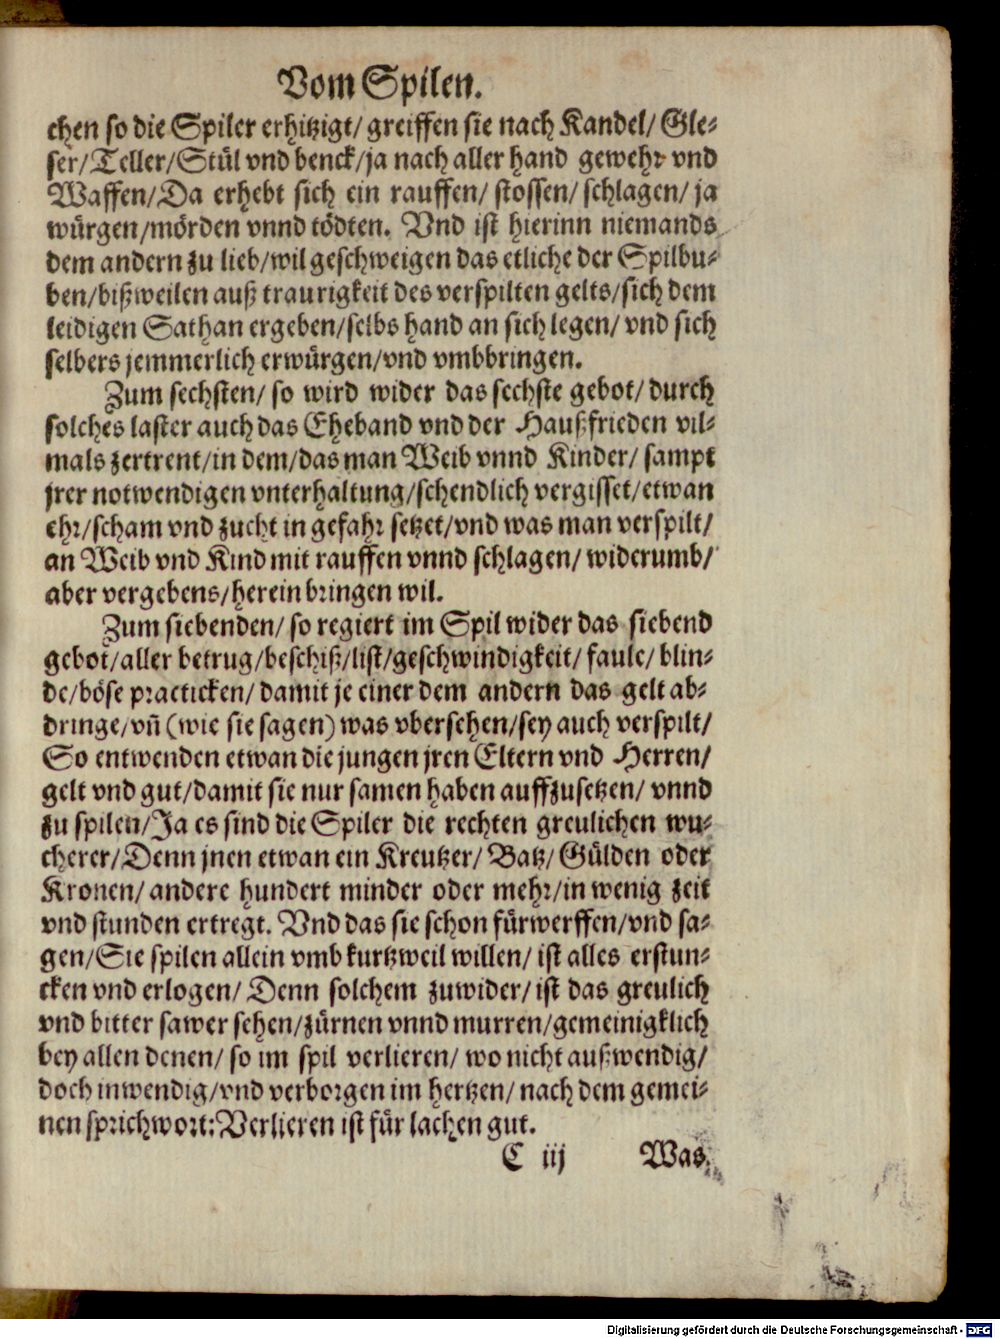 Vom Spilen.
chen so die Spiler erhitzigt/ greiffen sie nach Kandel/ Gle-
ser/Teller/Stül vnd benck/ja nach aller hand gewehr vnd
Waffen/Da erhebt sich ein rauffen/ stossen/ schlagen/ ja
würgen/mörden vnnd tödten. Vnd ist hierinn niemands
dem andern zu lieb/wil geschweigen das etliche der Spilbu-
ben/bißweilen auß traurigkeit des verspilten gelts/sich dem
leidigen Sathan ergeben/selbs hand an sich legen/ vnd sich
selbers jemmerlich erwürgen/vnd vmbbringen.
Zum sechsten/ so wird wider das sechste gebot/ durch
solches laster auch das Eheband vnd der Haußfrieden vil-
mals zertrent/in dem/das man Weib vnnd Kinder/ sampt
jrer notwendigen vnterhaltung/schendlich vergisset/etwan
ehr/scham vnd zucht in gefahr setzet/vnd was man verspilt/
an Weib vnd Kind mit rauffen vnnd schlagen/ widerumb/
aber vergebens/herein bringen wil.
Zum siebenden/ so regiert im Spil wider das siebend
gebot/aller betrug/beschiß/list/geschwindigkeit/ faule/ blin-
de/böse practicken/ damit je einer dem andern das gelt ab-
dringe/vñ (wie sie sagen) was vbersehen/sey auch verspilt/
So entwenden etwan die jungen jren Eltern vnd Herren/
gelt vnd gut/damit sie nur samen haben auffzusetzen/ vnnd
zu spilen/Ja es sind die Spiler die rechten greulichen wu-
cherer/Denn jnen etwan ein Kreutzer/ Batz/ Gülden oder
Kronen/ andere hundert minder oder mehr/in wenig zeit
vnd stunden ertregt. Vnd das sie schon fürwerffen/vnd sa-
gen/Sie spilen allein vmb kurtzweil willen/ ist alles erstun-
cken vnd erlogen/ Denn solchem zuwider/ ist das greulich
vnd bitter sawer sehen/zürnen vnnd murren/gemeinigklich
bey allen denen/ so im spil verlieren/ wo nicht außwendig/
doch inwendig/vnd verborgen im hertzen/ nach dem gemei-
nen sprichwort:Verlieren ist für lachen gut.
C iij Was
Digitalisierung gefördert durch die Deutsche Forschungsgemeinschaft - DFG